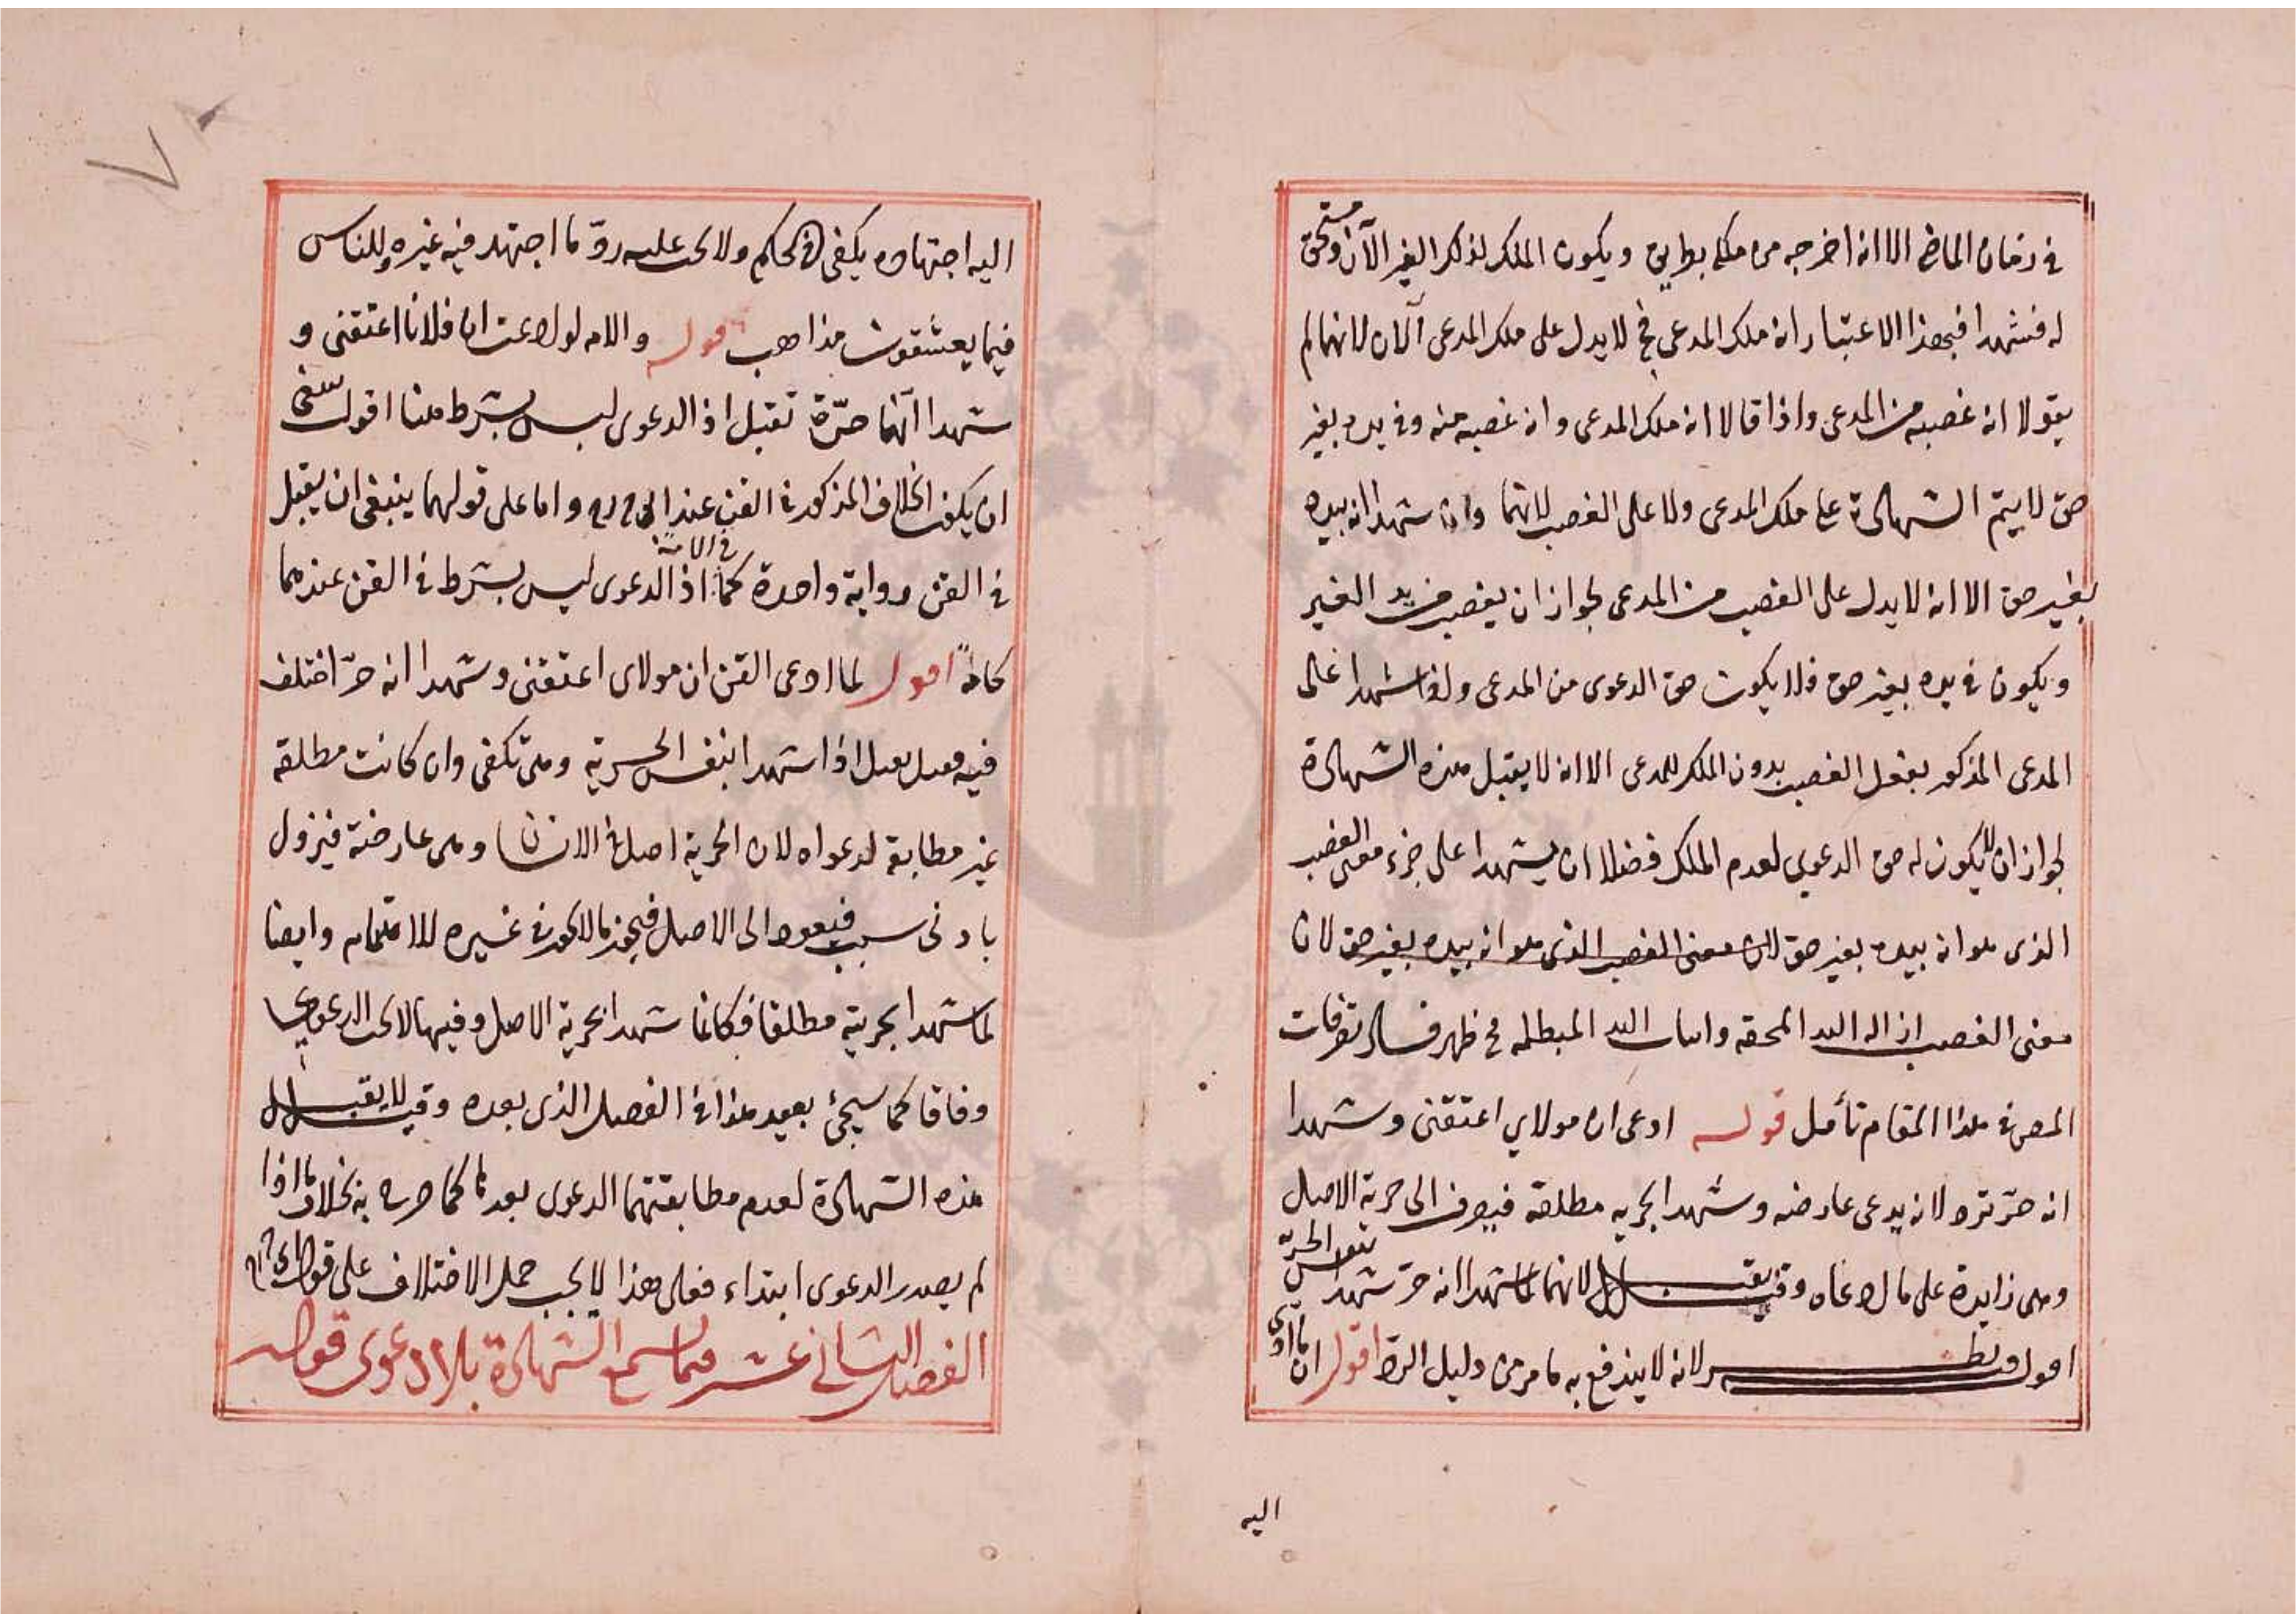 في زمان الماضي الا انه اخرجه من ملكه بطريق ويكون الملك لذلك الغير الآن ومستحق
له فشهدا فبهذا الاعتبار انه ملك المدعى فح لا يدل على ملك المدعى الآن لانهما لم
يقولا انه غصبه من المدعى واذا قالا انه ملك المدعى وانه غصبه منه وفي يده بغير
حق لا يتم الشهادة على ملك المدعى ولا على الغصب لانهما وان شهدا انه بيده
بغير حق الا انه لا يدل على الغصب من المدعى لجواز ان يغصب من يد الغير
ويكون في يده بغير حق فلا يكون حق الدعوى من المدعى ولو شهدا على
المدعى المذكور بفعل الغصب بدون الملك للمدعى الا انه لا يقبل هذه الشهادة
لجواز ان لا يكون له حق الدعوى لعدم الملك فضلا ان يشهدا على جزء معنى الغصب
الذى هو انه بيده بغير حق لان معنى الغصب الذى هو انه بيده بغير حق لان
معنى الغصب ازاله اليد المحقه واثبات اليد المبطله فح ظهر فساد تصرفات
المص في هذا المقام تأمل قوله ادعى ان مولاي اعتقنى وشهدا
انه حرّ ترد لانه يدعى عارضه وشهدا بحريه مطلقة فيصرف الى حرية الاصل
وهى زايدة على ما ادعاه وقيل يقبل لانهما لما شهدا انه حرّ شهدا بنفس الحريّه
اقول وفيه نظر لانه لا يندفع به ما مر من دليل الرد اقول ان ما ادى
اليه
اليه اجتهاده يكفى في الحكم ولا يجب عليه ردّ ما اجتهد فيه غيره وللناس
فيما يعشقون مذاهب قوله والامه لو ادعت ان فلانا اعتقنى و
شهدا انها حرّة تقبل اذ الدعوى ليس بشرط هنا اقول ينبغى
ان يكون الخلاف المذكور في القن عند ابى ح ره واما على قولهما ينبغى ان يقبل
في القن رواية واحدة كما في الامة اذ الدعوى ليس بشرط في القن عندهما
كالامة اقول لما ادعى القن ان مولاى اعتقنى وشهدا انه حرّ اختلف
فيه فقيل يقبل اذا شهدا بنفس الحرية وهى تكفى وان كانت مطلقه
غير مطابقة لدعواه لان الحرية اصل في الانسان وهى عارضة فيزول
بادنى سبب فيعود الى الاصل فيجوز ما لا يجوز في غيره للاهتمام وايضا
لما شهدا بحريته مطلقا فكانما شهدا بحرية الاصل وفيها لا يجب الدعوى
وفاقا كما سيجئ بعيد هذا في الفصل الذى بعده وقيل لا يقبل
هذه الشهادة لعدم مطابقتهما الدعوى بعدها كما صرح به بخلاف ما اذا
لم يصدر الدعوى ابتداء فعلى هذا لا يجب حمل الاختلاف على قول ابى ح ره
الفصل الثانى عشر فيما يسمع الشهادة بلا دعوى قوله